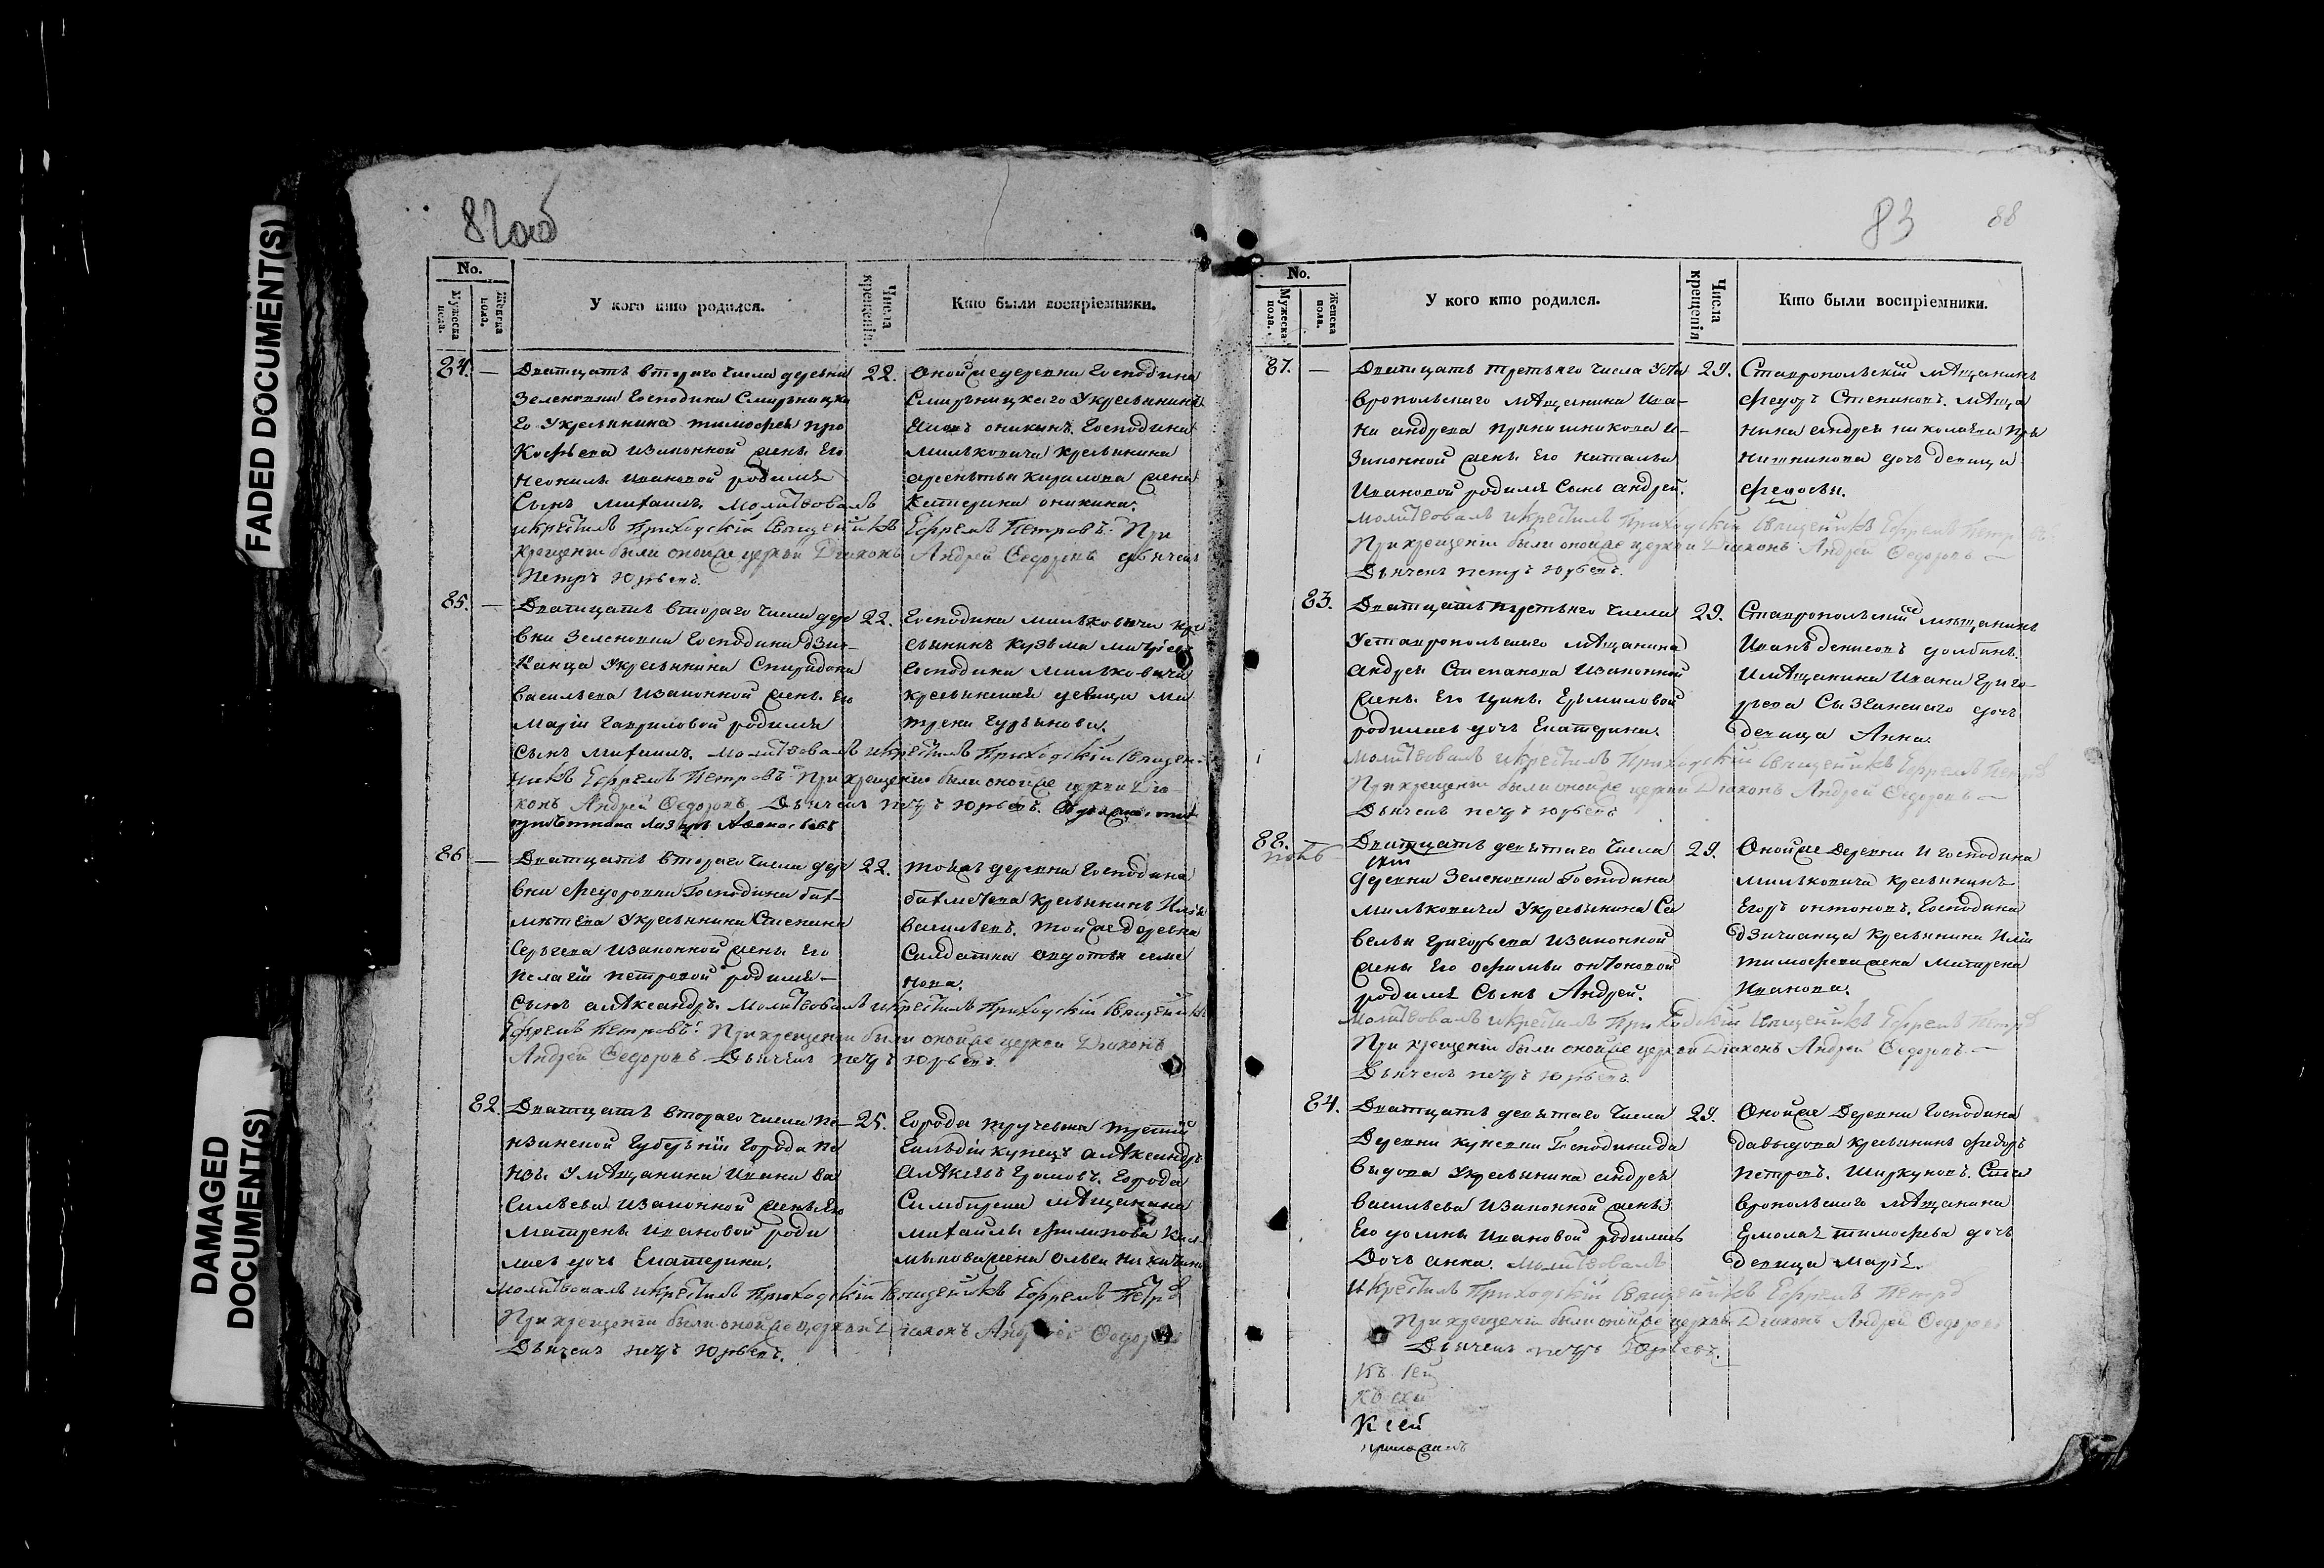 FADED DOCUMENT(S)
DAMAGED
DOCUMENT(S)
82об
No.
Мужеска пола.
Женска пола.
У кого кто родился.
Числа крещенія.
Кто были воспріемники.
84. — Дватцать втораго числа деревни
Зеленовки Господина Смирницка
го Укресьянина тимофея про
Кофьева изаконной жены его
Неонилы Ивановой родился
Сынъ михаилъ. Молитвовалъ
икрестилъ Приходскій священникъ Ефремъ Петровъ. При
крещеніи были оной же церкви Діаконъ Андрей Федоровъ дьячекъ
Петръ Юрьевъ.
22. Оной же деревни Господина
Смирницкаго Укресьянинъ
оникинъ. Господина
мильковича кресьянина
жена
Катерина оникина.
85. — Дватцать втораго числа дере
вни Зеленовки Господина дзич-
Канца Укресьянина Спиридона
Васильева изаконной жены его
Маріи Гавриловой родился
Сынъ михаилъ. Молитвовалъ икрестилъ Приходскій священ-
никъ Ефремъ Петровъ. При крещеніи были оной же церкви Діа-
конъ Андрей Федоровъ Дьячекъ петръ Юрьевъ.
22. Господина мильковича кре
сьянинъ Кузьма
Господина Мильковича
кресьянина девица Ма
трена Гурьянова.
86 — Дватцать втораго числа дере
вни федоровки Господина бах-
мѣтева Укресьянина Степана
Сергеева изаконной жены его
Пелагіи петровой родился
Сынъ алѣксандръ. Молитвовалъ икрестилъ Приходскій священникъ
Ефремъ Петровъ. При крещеніи были оной же церкви Діаконъ
Андрей Федоровъ Дьячекъ петръ Юрьевъ.
22. тояжъ деревни Господина
бахметева кресьянинъ Илья
васильевъ. той же деревни
Салдатка авдотья семе
нова.
82. Дватцать втораго числа пе-
нзинской Губерніи Города пе
нзы Умѣщанина Ивана Ва
сильева изаконной жены его
Матрены Ивановой роди
лась дочь Екатерина.
Молитвовалъ икрестилъ Приходскій священникъ Ефремъ Петро
При крещеніи были оной же церкви Діаконъ Андрей Федоровъ
Дьячекъ петръ Юрьевъ.
25. Города третій
Гильдіи купецъ алѣксандръ
алѣксѣевъ Громовъ. Города
Симбирска мѣщанина
михаилы филипова
жена Ольга
83
88
No.
Мужеска пола.
Женска пола.
У кого кто родился.
Числа крещенія
Кто были воспріемники.
87. — Дватцать третьяго числа Уста
вропольскаго мѣщанина Ива-
на андреева прянишникова и-
Законной жены его натальи
Ивановой родился Сынъ андрей.
Молитвовалъ икрестилъ Приходскій священникъ Ефремъ Петровъ
При крещеніи были оной же церкви Діаконъ Андрей Федоровъ —
Дьячекъ петръ Юрьевъ.
29. Ставропольскій мѣщанинъ
федоръ Степановъ. мѣща
нина андрея николаева пря
нишникова дочь девица
федосья.
83. Дватцать третьяго числа
Уставропольскаго мѣщанина
андрея Степанова изаконной
жены его Ермиловой
родилась дочь Екатерина.
Молитвовалъ икрестилъ Приходскій священникъ Ефремъ Петровъ
При крещеніи были оной же церкви Діаконъ Андрей Федоровъ —
Дьячекъ петръ Юрьевъ
29. Ставропольскій мѣщанинъ
Иванъ денисовъ долбинъ.
Имѣщанина Ивана Григо-
рева Сызганскаго дочь
девица Анна.
88. Дватцать девятаго числа
деревни Зеленовки Господина
Мильковича Укресьянина Са
велья Григорьева изаконной
жены его афимьи онтоновой
родился Сынъ Андрей.
Молитвовалъ икрестилъ Приходскій священникъ Ефремъ Петро
При крещеніи были оной же церкви Діаконъ Андрей Федоровъ —
Дьячекъ петръ Юрьевъ.
29. Оной же Деревни И Господина
мильковича кресьянинъ
Егоръ онтоновъ. Господина
дзичканца кресьянина Ильи
тимофева жена Матрена
Иванова.
84. Дватцать девятаго числа
Деревни куневки Господина да
выдова Укресьянина андрея
васильева изаконной жены
его домны Ивановой родилась
Дочь анна. Молитвовалъ
икрестилъ Приходскій священникъ Ефремъ Петро
При крещеніи были оной же церкви Діаконъ Андрей Федоровъ
Дьячекъ петръ Юрьевъ.
29. Оной же Деревни Господина
давыдова кресьянинъ федоръ
петровъ. Ширкуновъ. Ста
вропольскаго мѣщанина
Ермолая тимофева дочь
девица марія.
К сей